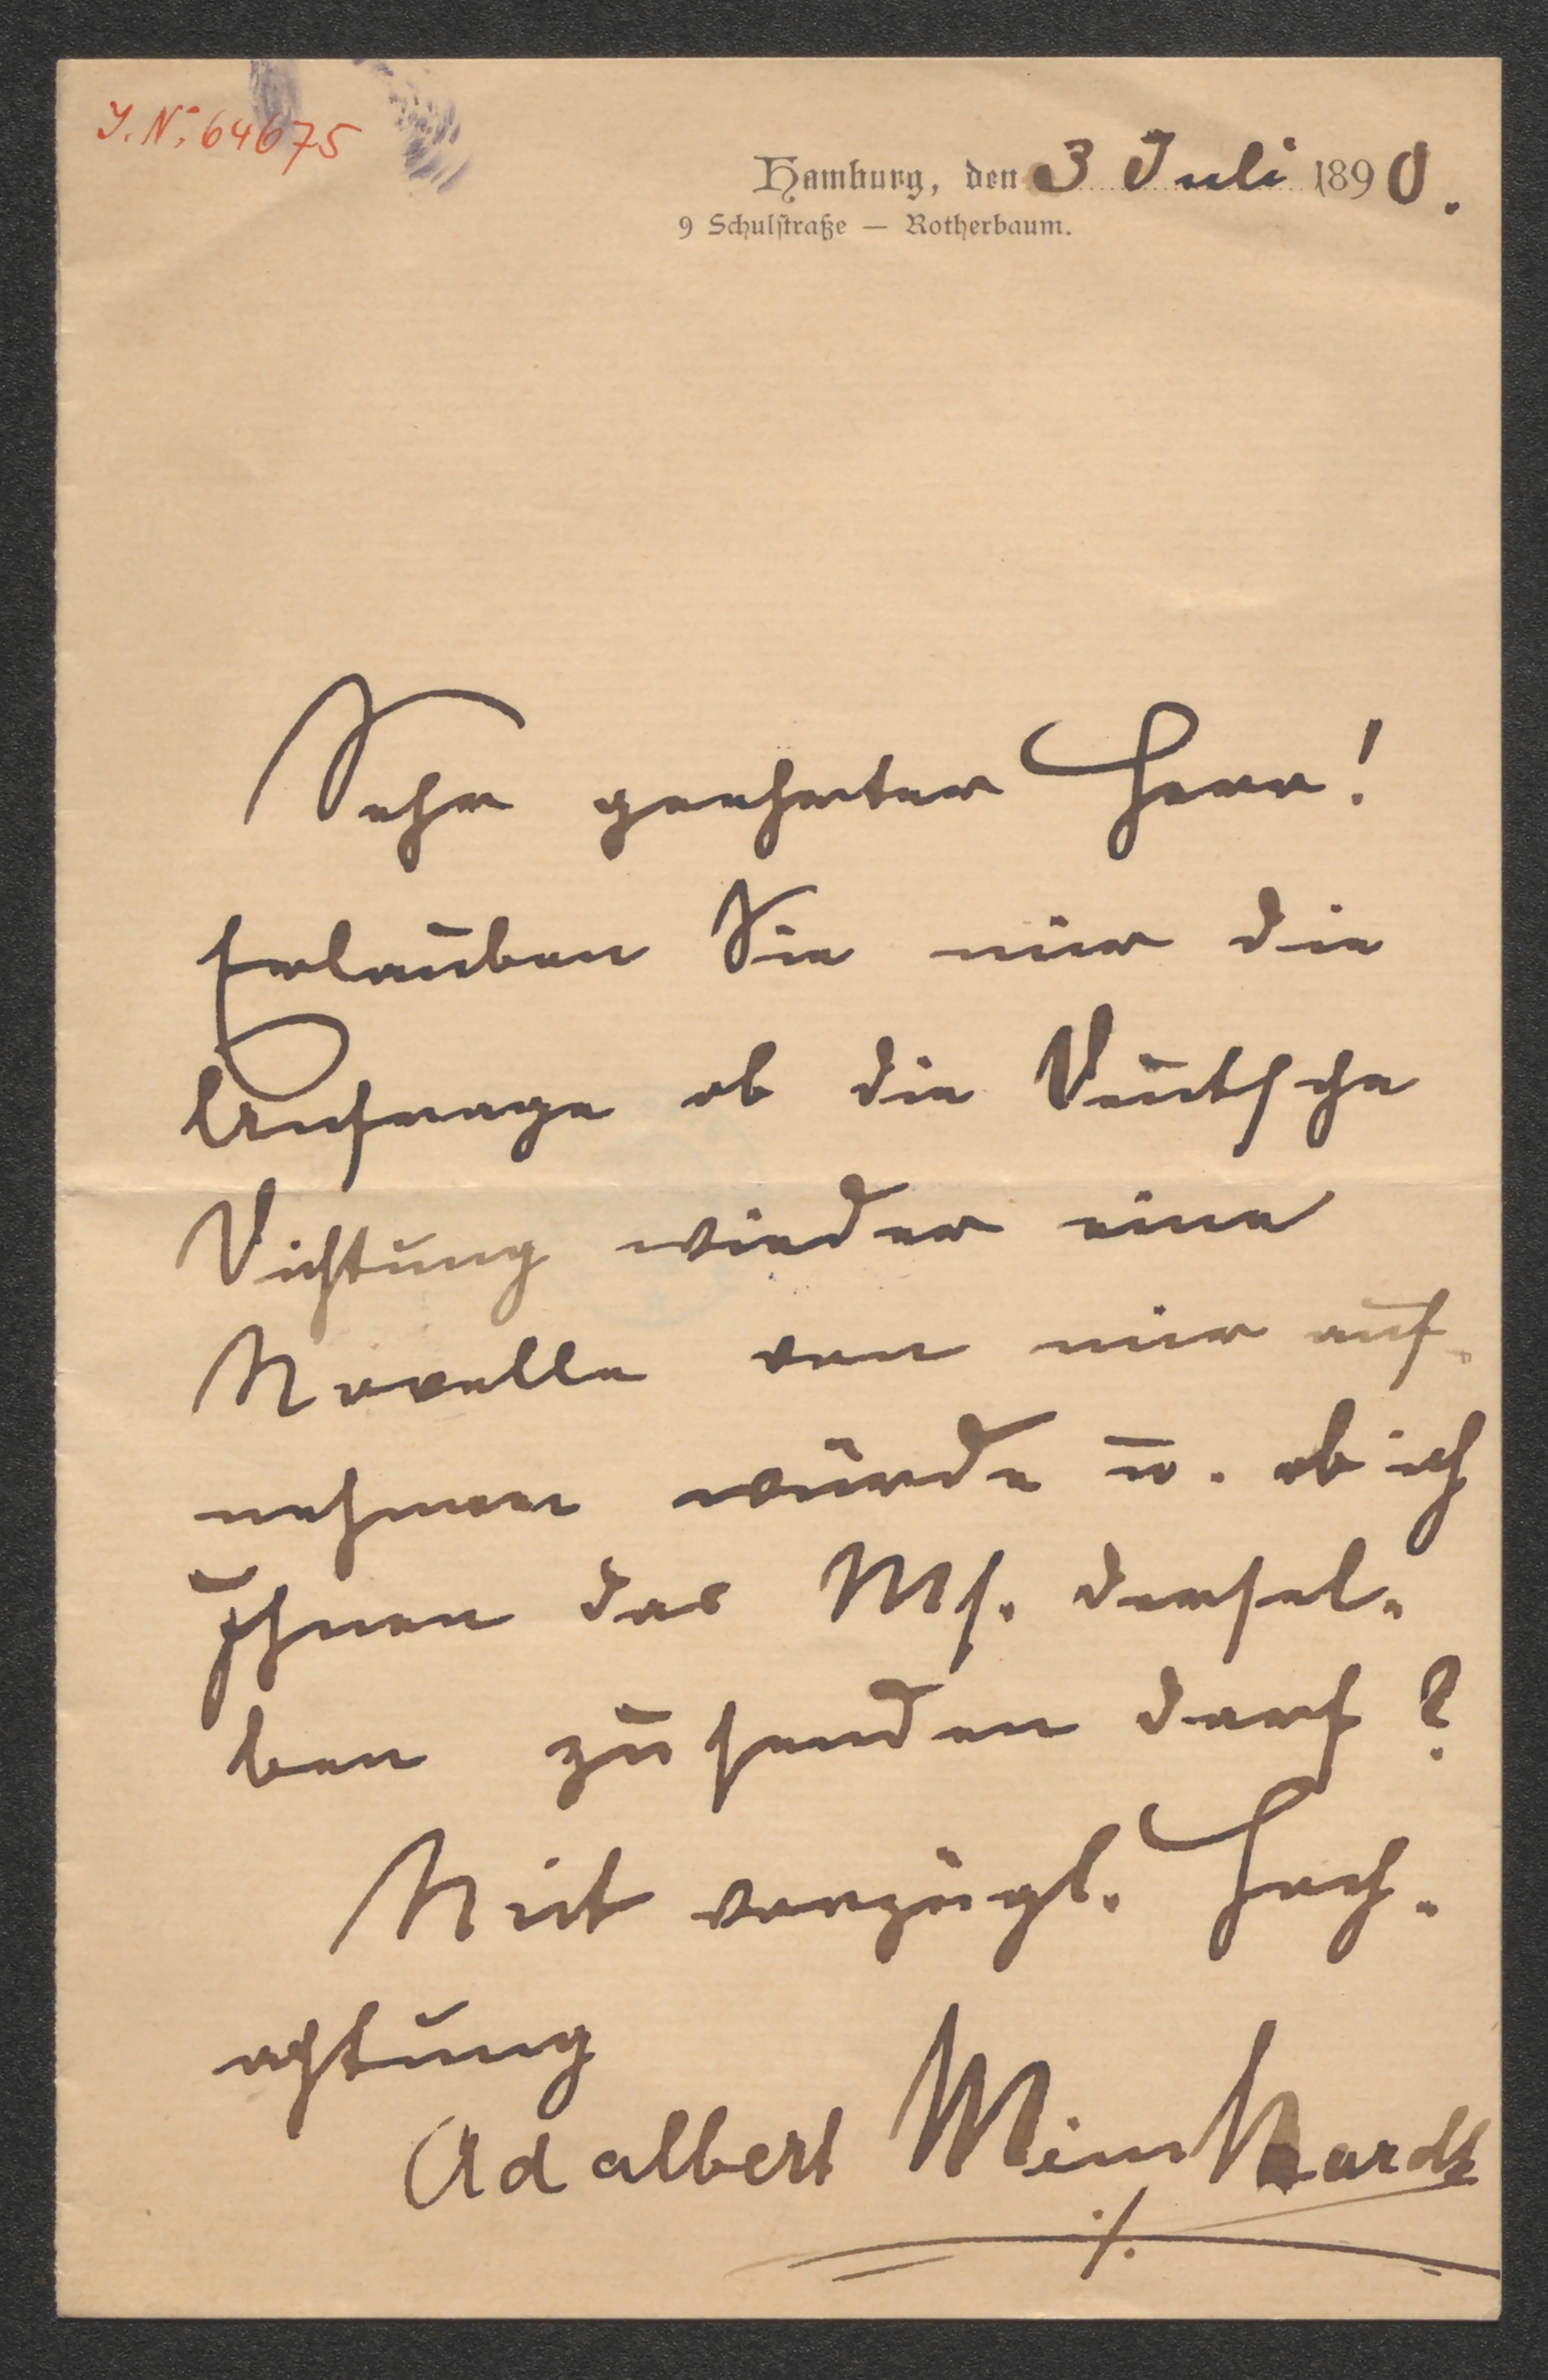 J. N. 64675
Hamburg, den 3 Juli 1890.
9 Schulstraße — Rotherbaum.
Sehr geehrter Herr!
Erlauben Sie mir die
Anfrage ob die Deutsche
Dichtung wieder eine
Novelle von mir auf-
nehmen würde u. ob ich
Ihnen das Ms. dersel-
ben zusenden darf?
Mit vorzügl. Hoch-
achtung
Adalbert Meinhardt
./.